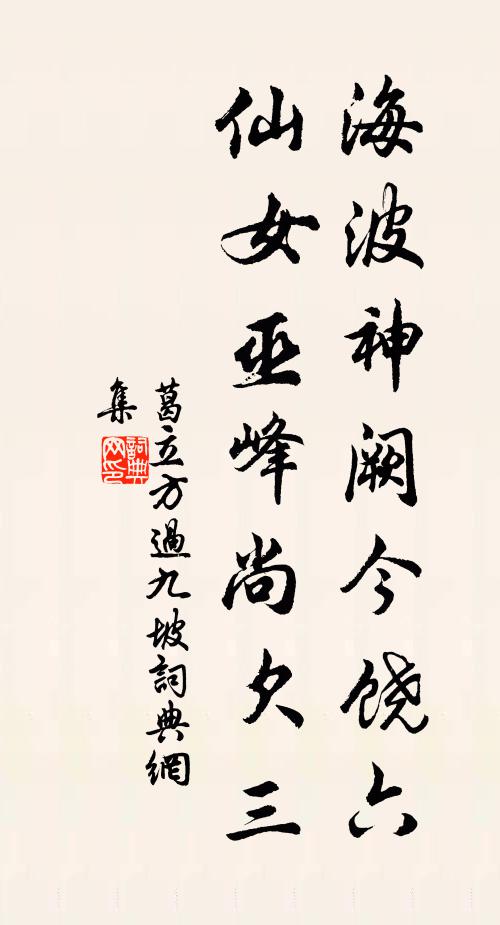 海波神阙今饶六
仙女巫峰尚欠三
葛立方過九坡詞典網
集
詞典网印